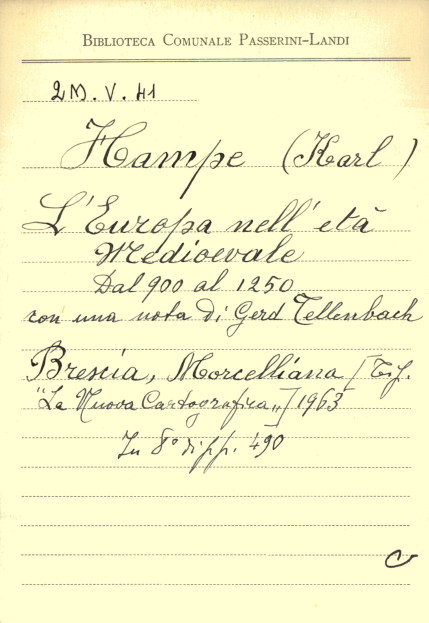 BIBLIOTECA COMUNALE PASSERINI-LANDI
2M. V. 41
Hampe (Karl)
L'Europa nell'età
Medioevale
Dal 900 al 1250
con una nota di Gerd Tellenbach
Brescia, Morcelliana [Tif.
"La Nuova Cartografica"] 1963
In 8° di pp. 490
C